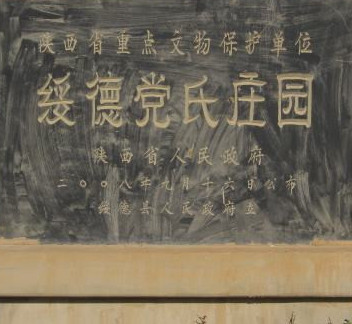 陕西省重点文物保护单位
绥德党氏庄园
陕西省人民政府
二〇〇八年九月十六日公布
绥德县人民政府立